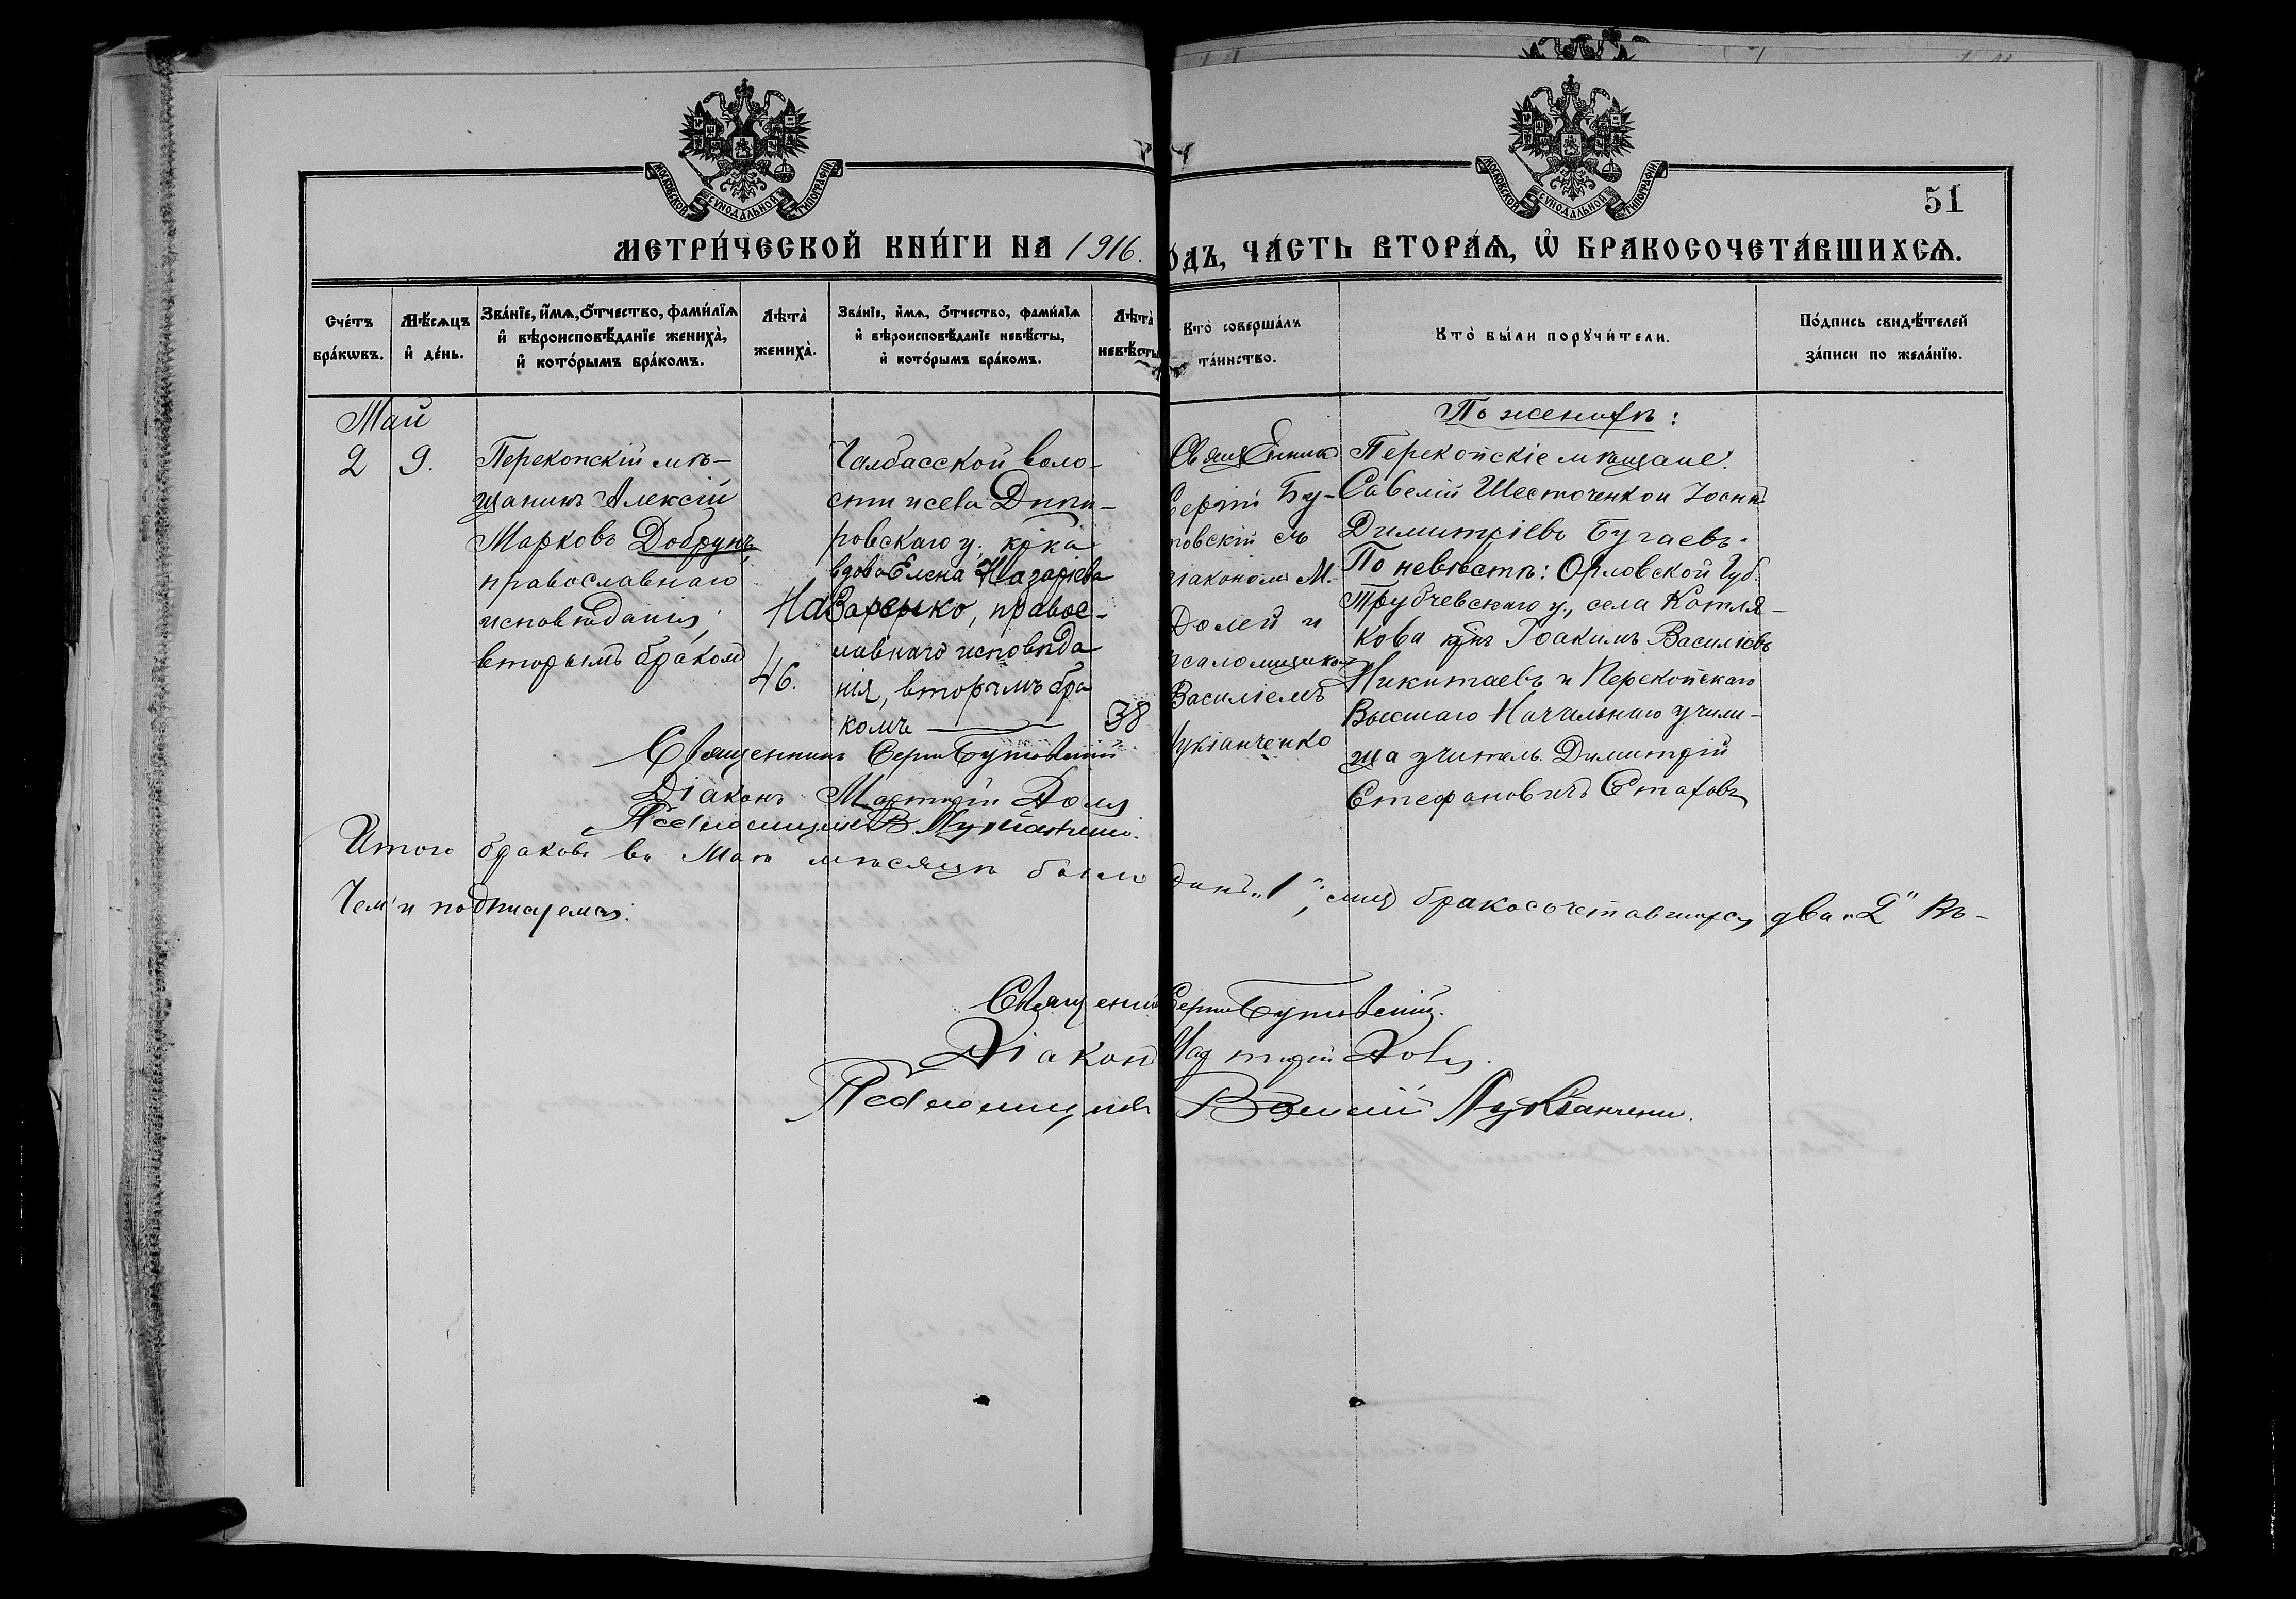 МОСКОВСКОЙ СѴНОДАЛЬНОЙ ТИПОГРАФІИ
МОСКОВСКОЙ СѴНОДАЛЬНОЙ ТИПОГРАФІИ
51
МЕТРИ́ЧЕСКОЙ КНИ́ГИ НА 1916.
О́ДЪ, ЧА́СТЬ ВТОРА́Ѧ, Ѡ҆ БРАКОСОЧЕТА́ВШИХСѦ.
Сче́тъ
бра́кѡвъ.
Мѣ́сѧцъ
и҆ де́нь.
Зва́нїе, и҆́мѧ, ѻ҆́тчество, фами́лїѧ
и҆ вѣроисповѣ́данїе жениха̀,
и҆ кото́рымъ бра́комъ.
Лѣта̀
жениха̀.
Зва́нїе, и҆́мѧ, ѻ҆́тчество, фами́лїѧ
и҆ вѣроисповѣ́данїе невѣ́сты,
и҆ кото́рымъ бра́комъ.
Лѣта̀
невѣ́сты
Кто̀ соверша́лъ
та́инство.
Кто̀ бы́ли порꙋчи́тели.
По́дпись свидѣ́телей
за́писи по жела́нїю.
Май
2
9.
Перекопскій мѣ-
щанинъ Алексій
Марковъ Добрунъ,
православнаго
исповѣданія,
вторымъ бракомъ
46.
Чалбасской воло-
сти и села Днѣп-
ровскаго у, крка
вдова Елена Назаріева
Назаренко, правос-
лавнаго исповѣда
нія, вторымъ бра
комъ
38
Священник
Сергій Бу-
товскій съ
діакономъ М.
Долей и
псаломщиком
Василіемъ
Лукіанченко
По женихѣ:
Перекопскіе мѣщане:
Савелій Шесточенко и Іоанн
Димитріевъ Бугаевъ.
По невѣстѣ: Орловской Губ.
Трубчевскаго у., села Котля-
кова крнъ Іоакимъ Василіевъ
Никитаевъ и Перекопскаго
Высшаго Начальнаго учили-
ща учитель Димитрій
Стефановичъ Стаховъ
Священникъ Сергій Бутовскій
Діаконъ Мартирій Доля
Псаломщикъ В. Лукіанченко.
Итого браковъ въ Маѣ мѣсяцѣ было
динъ „1“, лицъ бракосочетавшихся два „2“ Въ-
Чемъ и подписуемся.
Священник Сергій Бутовскій.
Діакон Мартирій Доля.
Псаломщикъ Василій Лукіанченко.